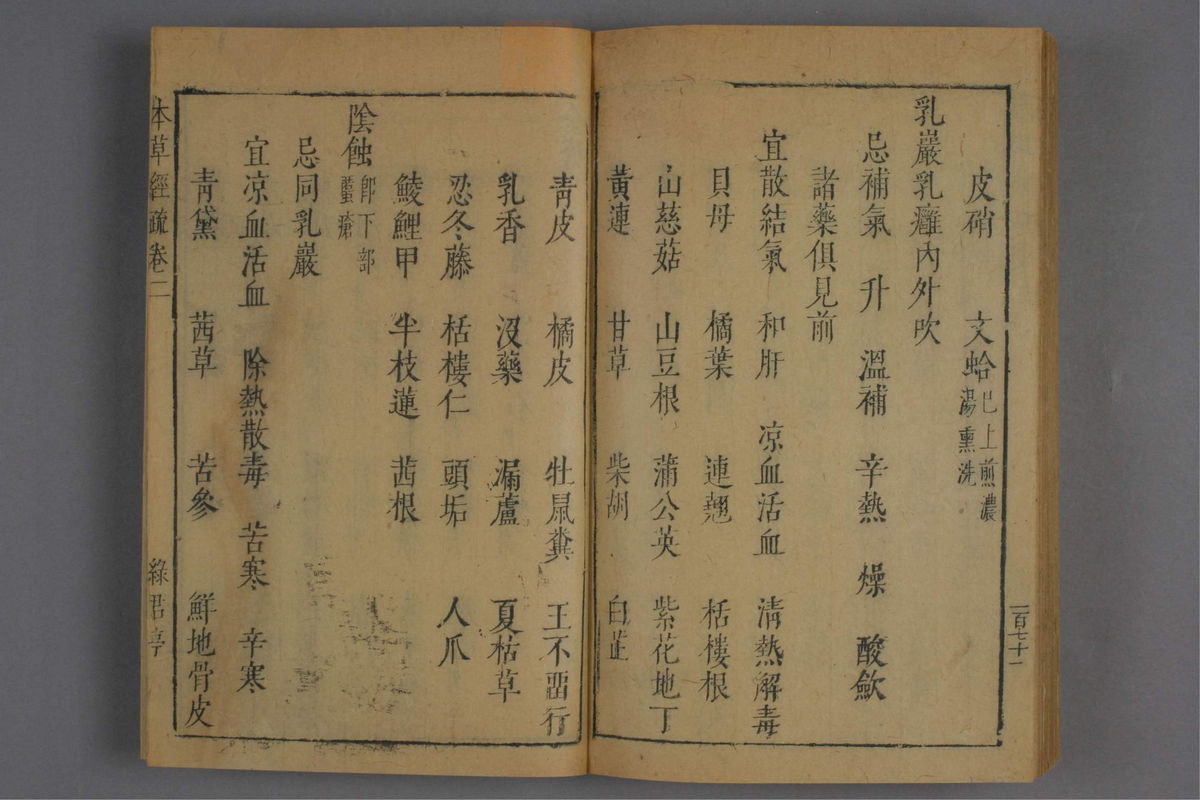 皮硝 文蛤 已上煎濃湯熏洗
乳巖乳癰內外吹
忌補氣 升 溫補 辛熱 燥 酸歛
諸藥俱見前
宜散結氣 和肝 凉血活血 清熱解毒
貝母 橘葉 連翹 栝樓根
山慈菇 山豆根 蒲公英 紫花地丁
黃連 甘草 柴胡 白芷
一百七十一
青皮 橘皮 牡鼠糞 王不畱行
乳香 沒藥 漏蘆 夏枯草
忍冬藤 栝樓仁 頭垢 人爪
鯪鯉甲 半枝蓮 茜根
陰蝕 卽下部䘌瘡
忌同乳巖
宜凉血活血 除熱散毒 苦寒 辛寒
靑黛 茜草 苦參 鮮地骨皮
本草經疏卷二 綠君亭